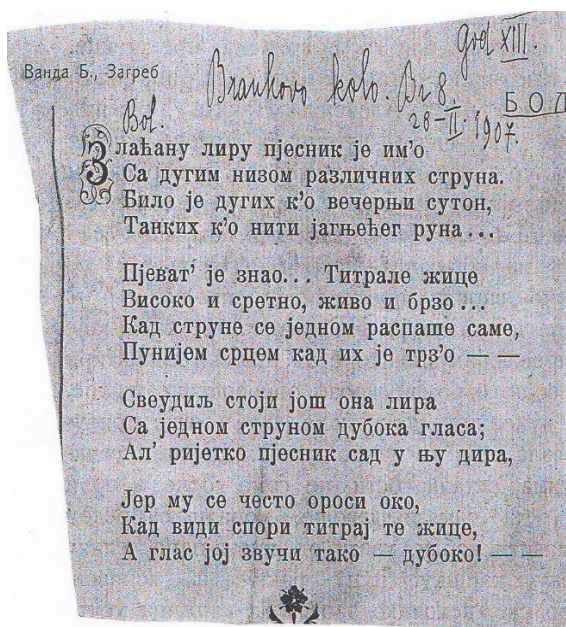 God XIII.
Ванда Б., Загреб
Brankovo kolo. Br 8
БОЛ
Bol.
28-II. 1907.
Злаћану лиру пјесник је им’о
Са дугим низом различних струна.
Било је дугих к’о вечерњи сутон,
Танких к’о нити јагњећег руна...
Пјеват’ је знао... Титрале жице
Високо и сретно, живо и брзо...
Кад струне се једном распаше саме,
Пунијем срцем кад их је трз’о — —
Свеудиљ стоји још она лира
Са једном струном дубока гласа;
Ал’ ријетко пјесник сад у њу дира,
Јер му се често ороси око,
Кад види спори титрај те жице,
А глас јој звучи тако — дубоко! — —